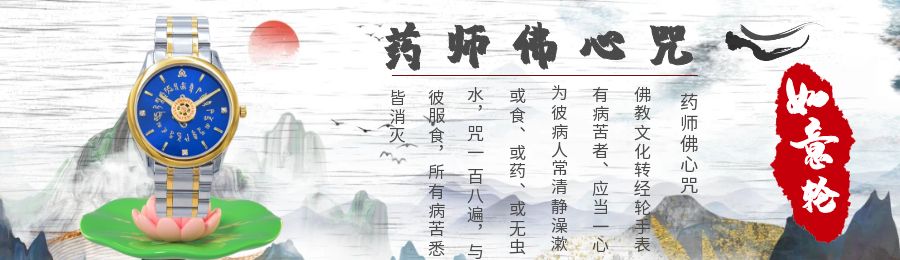 药师佛心咒
药师佛心咒
佛教文化转经轮手表
有病苦者、应当一心
为彼病人常清静澡漱
或食、或药、或无虫
水，咒一百八遍，与
彼服食，所有病苦悉
皆消灭
如意轮